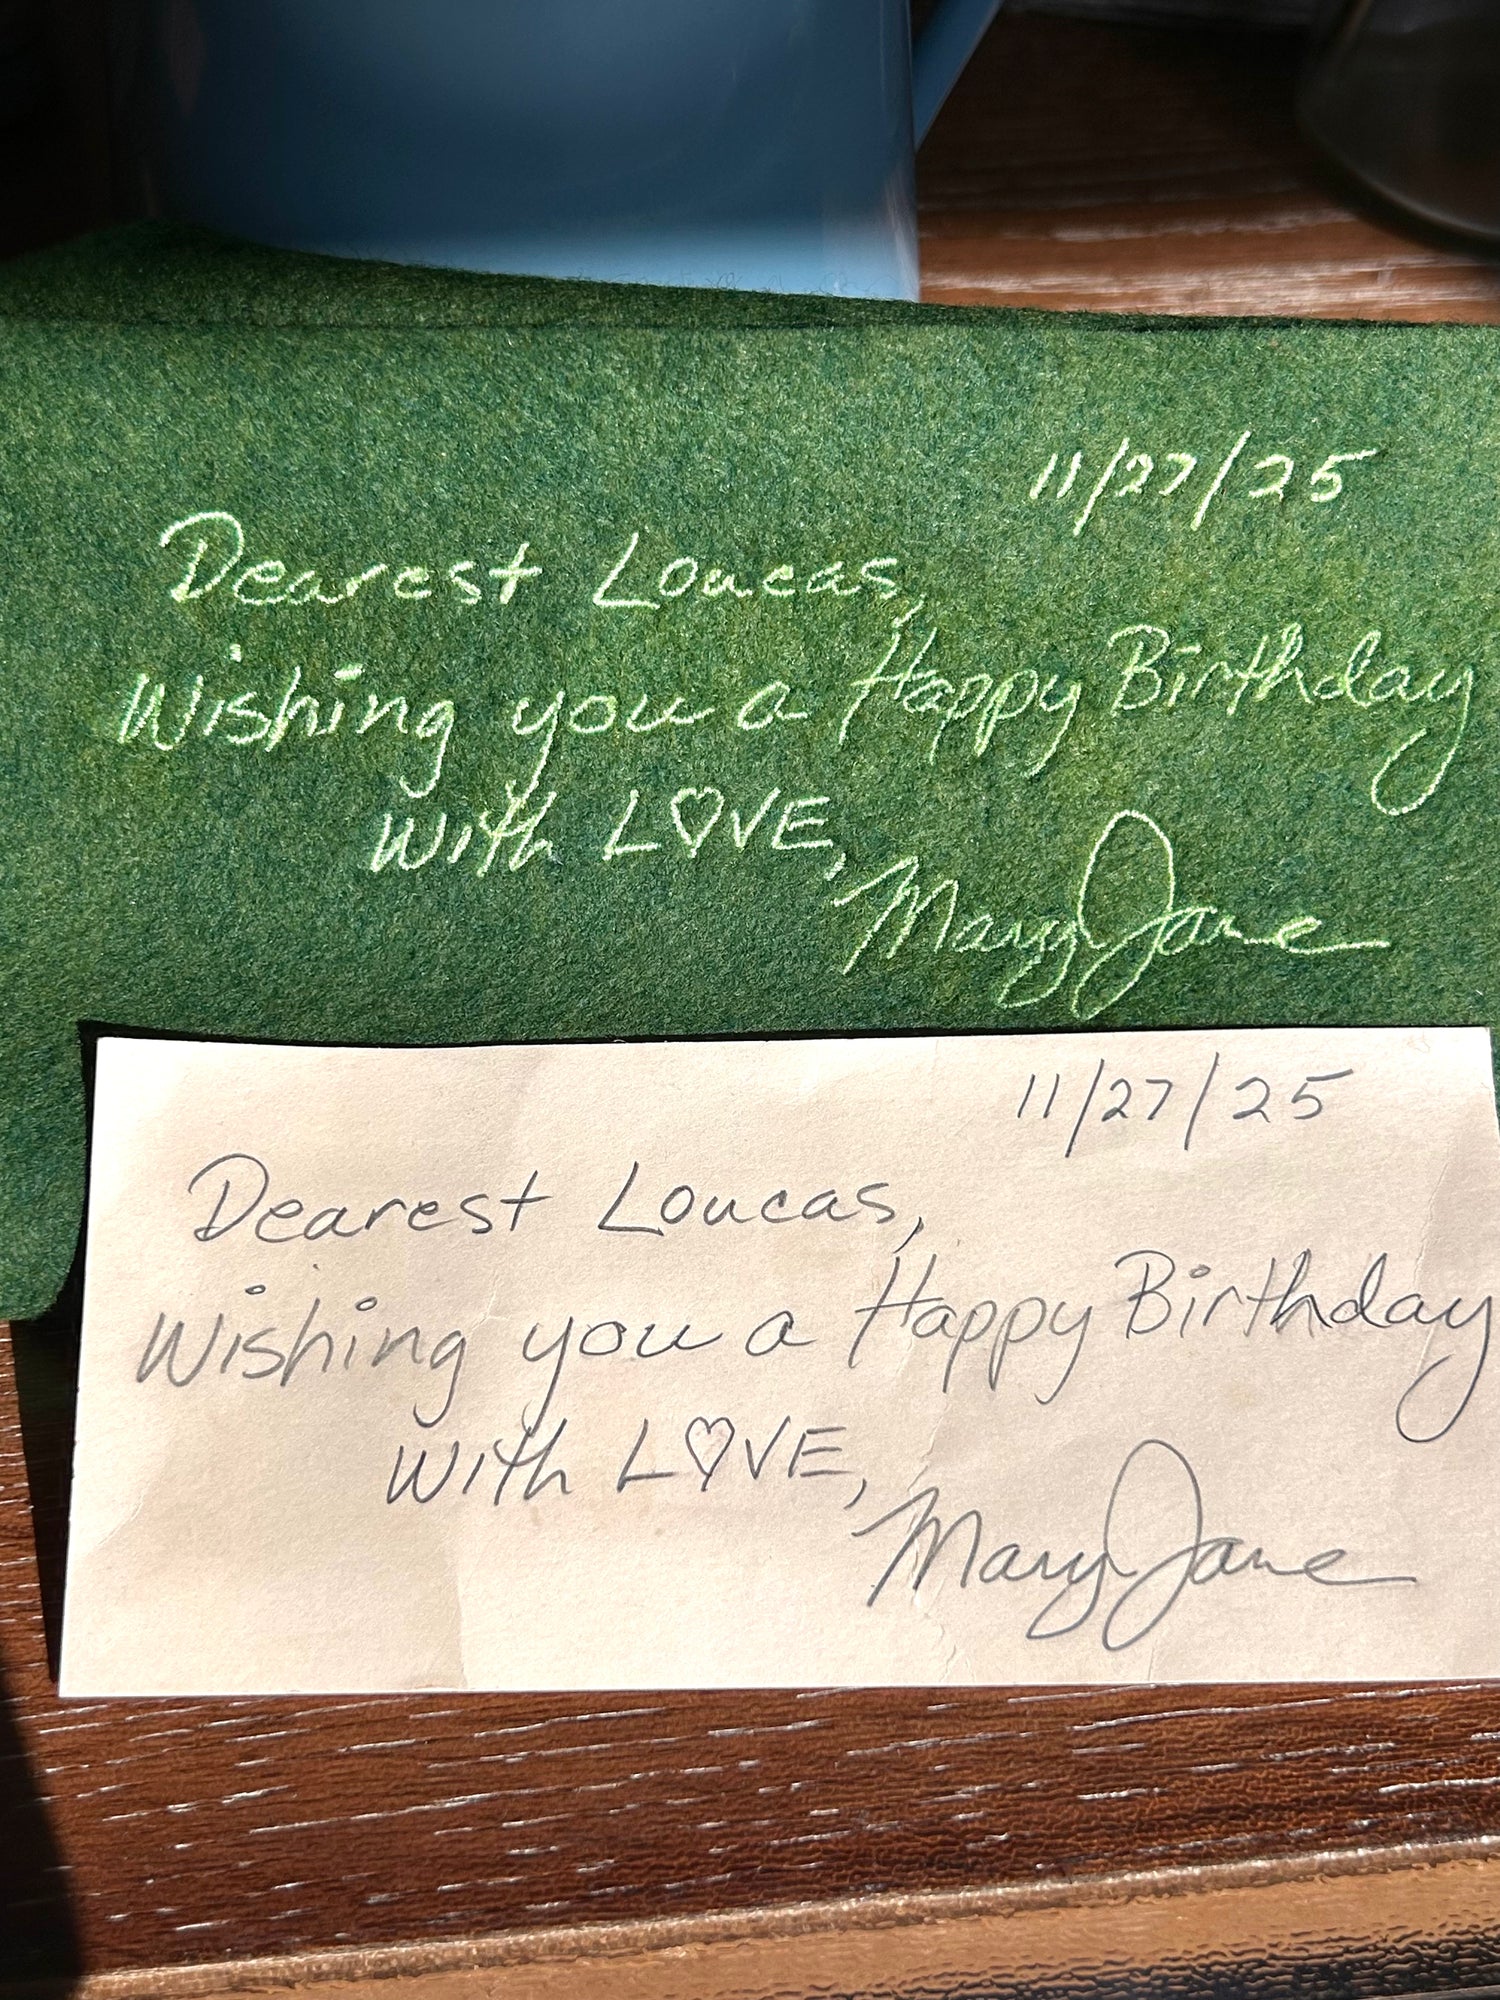 11/27/25
Dearest Loucas,
Wishing you a Happy Birthday
With L♡VE,
Mary Jane
11/27/25
Dearest Loucas,
Wishing you a Happy Birthday
With L♡VE,
Mary Jane